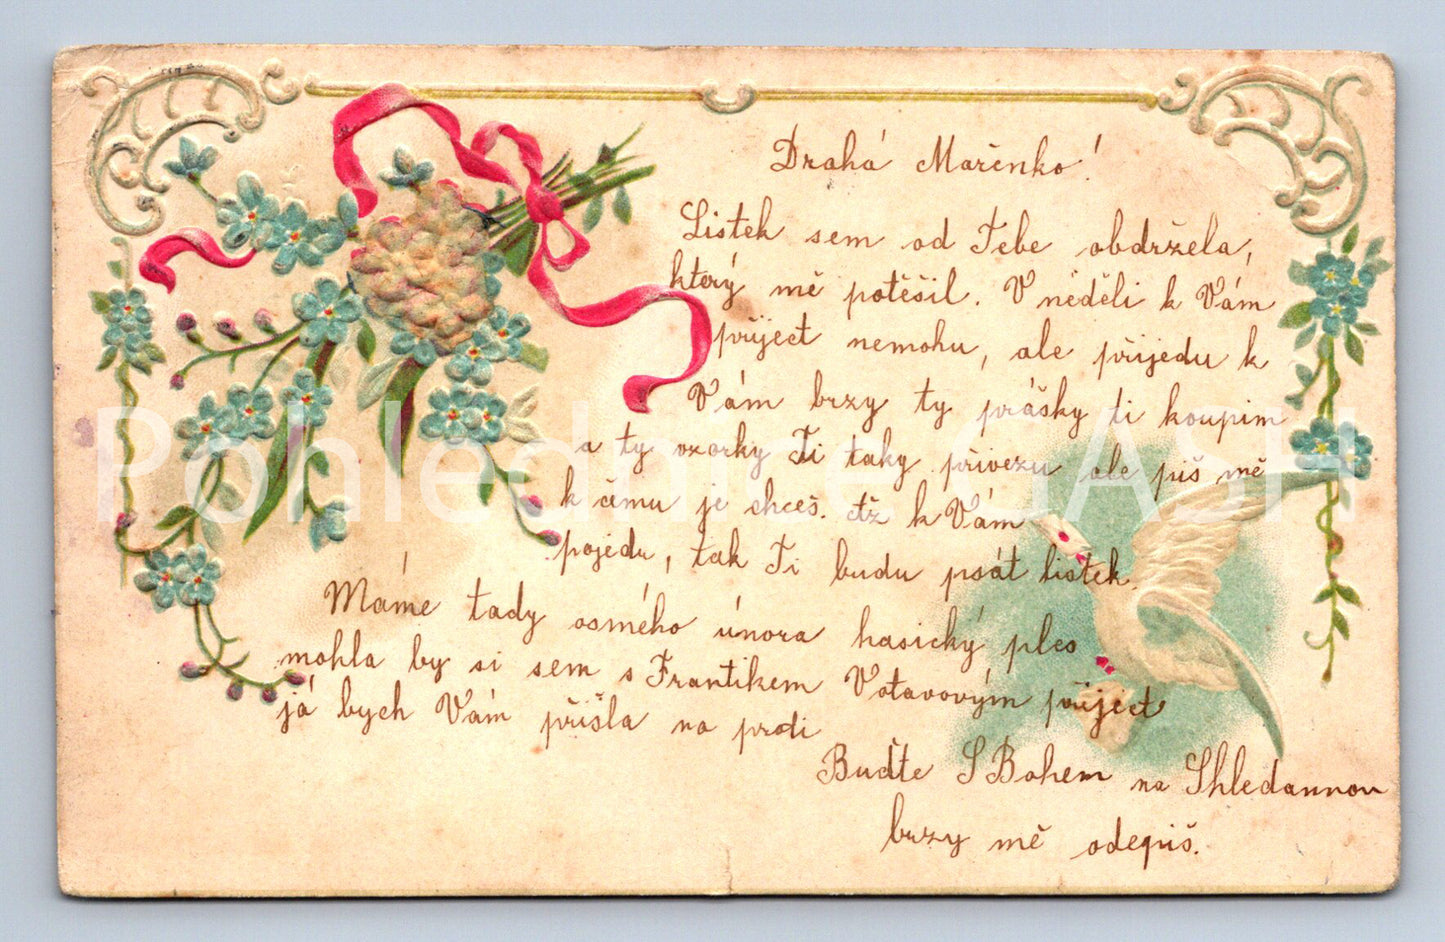 Drahá Mařenko!
Listek sem od Tebe obdržela,
který mě potěšil. V neděli k Vám
přiject nemohu, ale přijedu k
Vám brzy ty prášky ti koupim
a ty vzorky Ti taky přivezu ale piš mě
k čemu je chceš. Až k Vám
pojedu, tak Ti budu psát listek.
Máme tady osmého února hasický ples
mohla by si sem s Frantikem Votavovým přiject
já bych Vám přišla na proti
Buďte S Bohem na Shledannou
brzy mě odepiš.
Pohlednice GASH